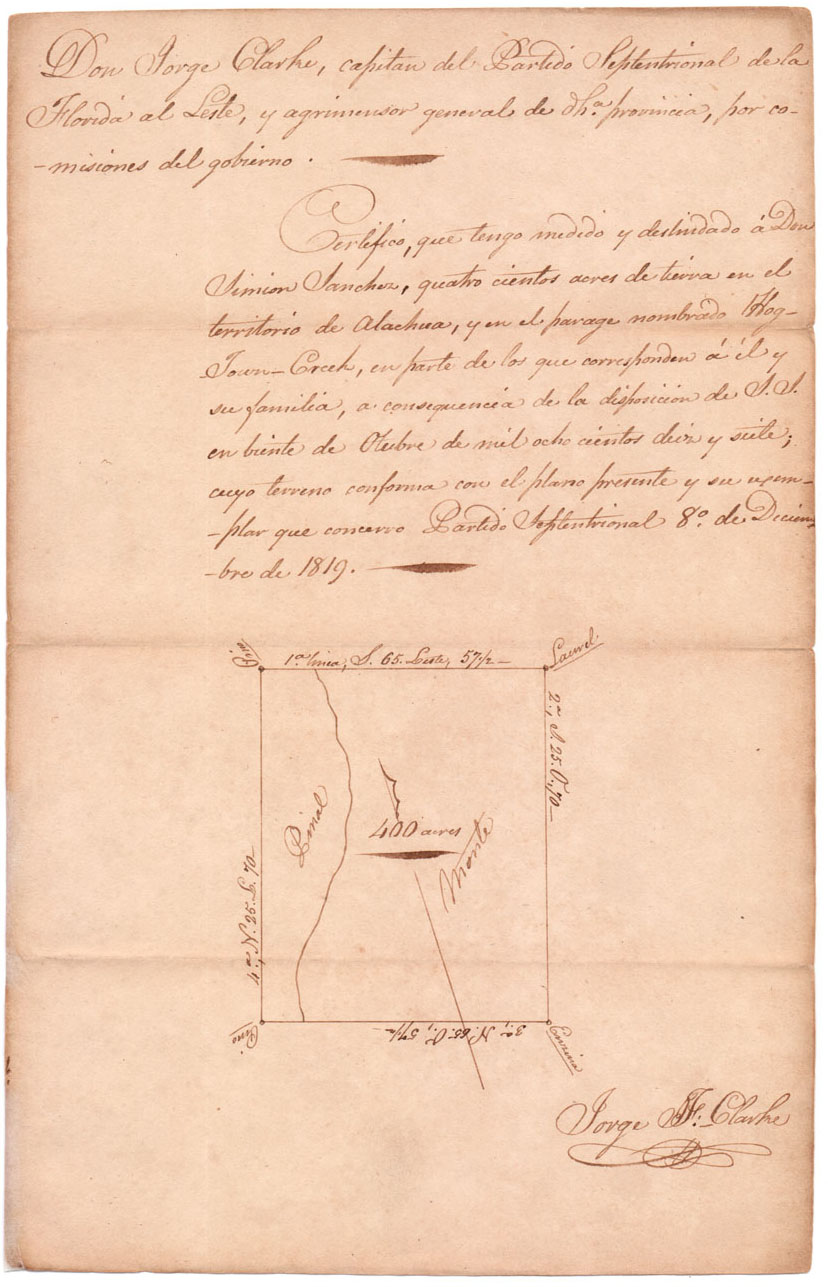 Don Jorge Clarke, capitan del Partido Septentrional de la
Florida al Leste, y agrimensor general de dha. provincia, por co-
-misiones del gobierno.
Certifico, que tengo medido y deslindado á Don
Simion Sanchez, quatro cientos acres de tierra en el
territorio de Alachua, y en el parage nombrado Hog-
Town-Creek, en parte de los que corresponden á él y
su familia, a consequencia de la disposicion de S. S.
en biente de Otubre de mil ocho cientos deiz y siete;
cuyo terreno conforma con el plano presente y su exem-
-plar que concerro Partido Septentrional 8º. de Deciem
-bre de 1819.
Pino
1ª linea, S. 65. Leste, 57½
Laurel
2ª, S. 25. O., 70
Pinal
400 acres
Monte
4ª, N. 25. L. 70
Pino
3ª, N. 65. O., 57½
Enzina
Jorge J. F. Clarke